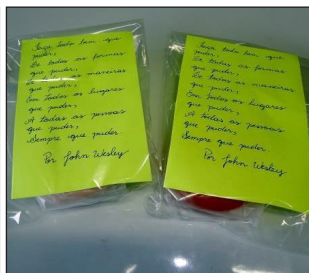 Faça todo bem que
puder,
De todas as formas
que puder,
De todas as maneiras
que puder,
Em todos os lugares
que puder,
A todas as pessoas
que puder,
Sempre que puder.
Por John Wesley
Faça todo bem que
puder,
De todas as formas
que puder,
De todas as maneiras
que puder,
Em todos os lugares
que puder,
A todas as pessoas
que puder,
Sempre que puder
Por John Wesley